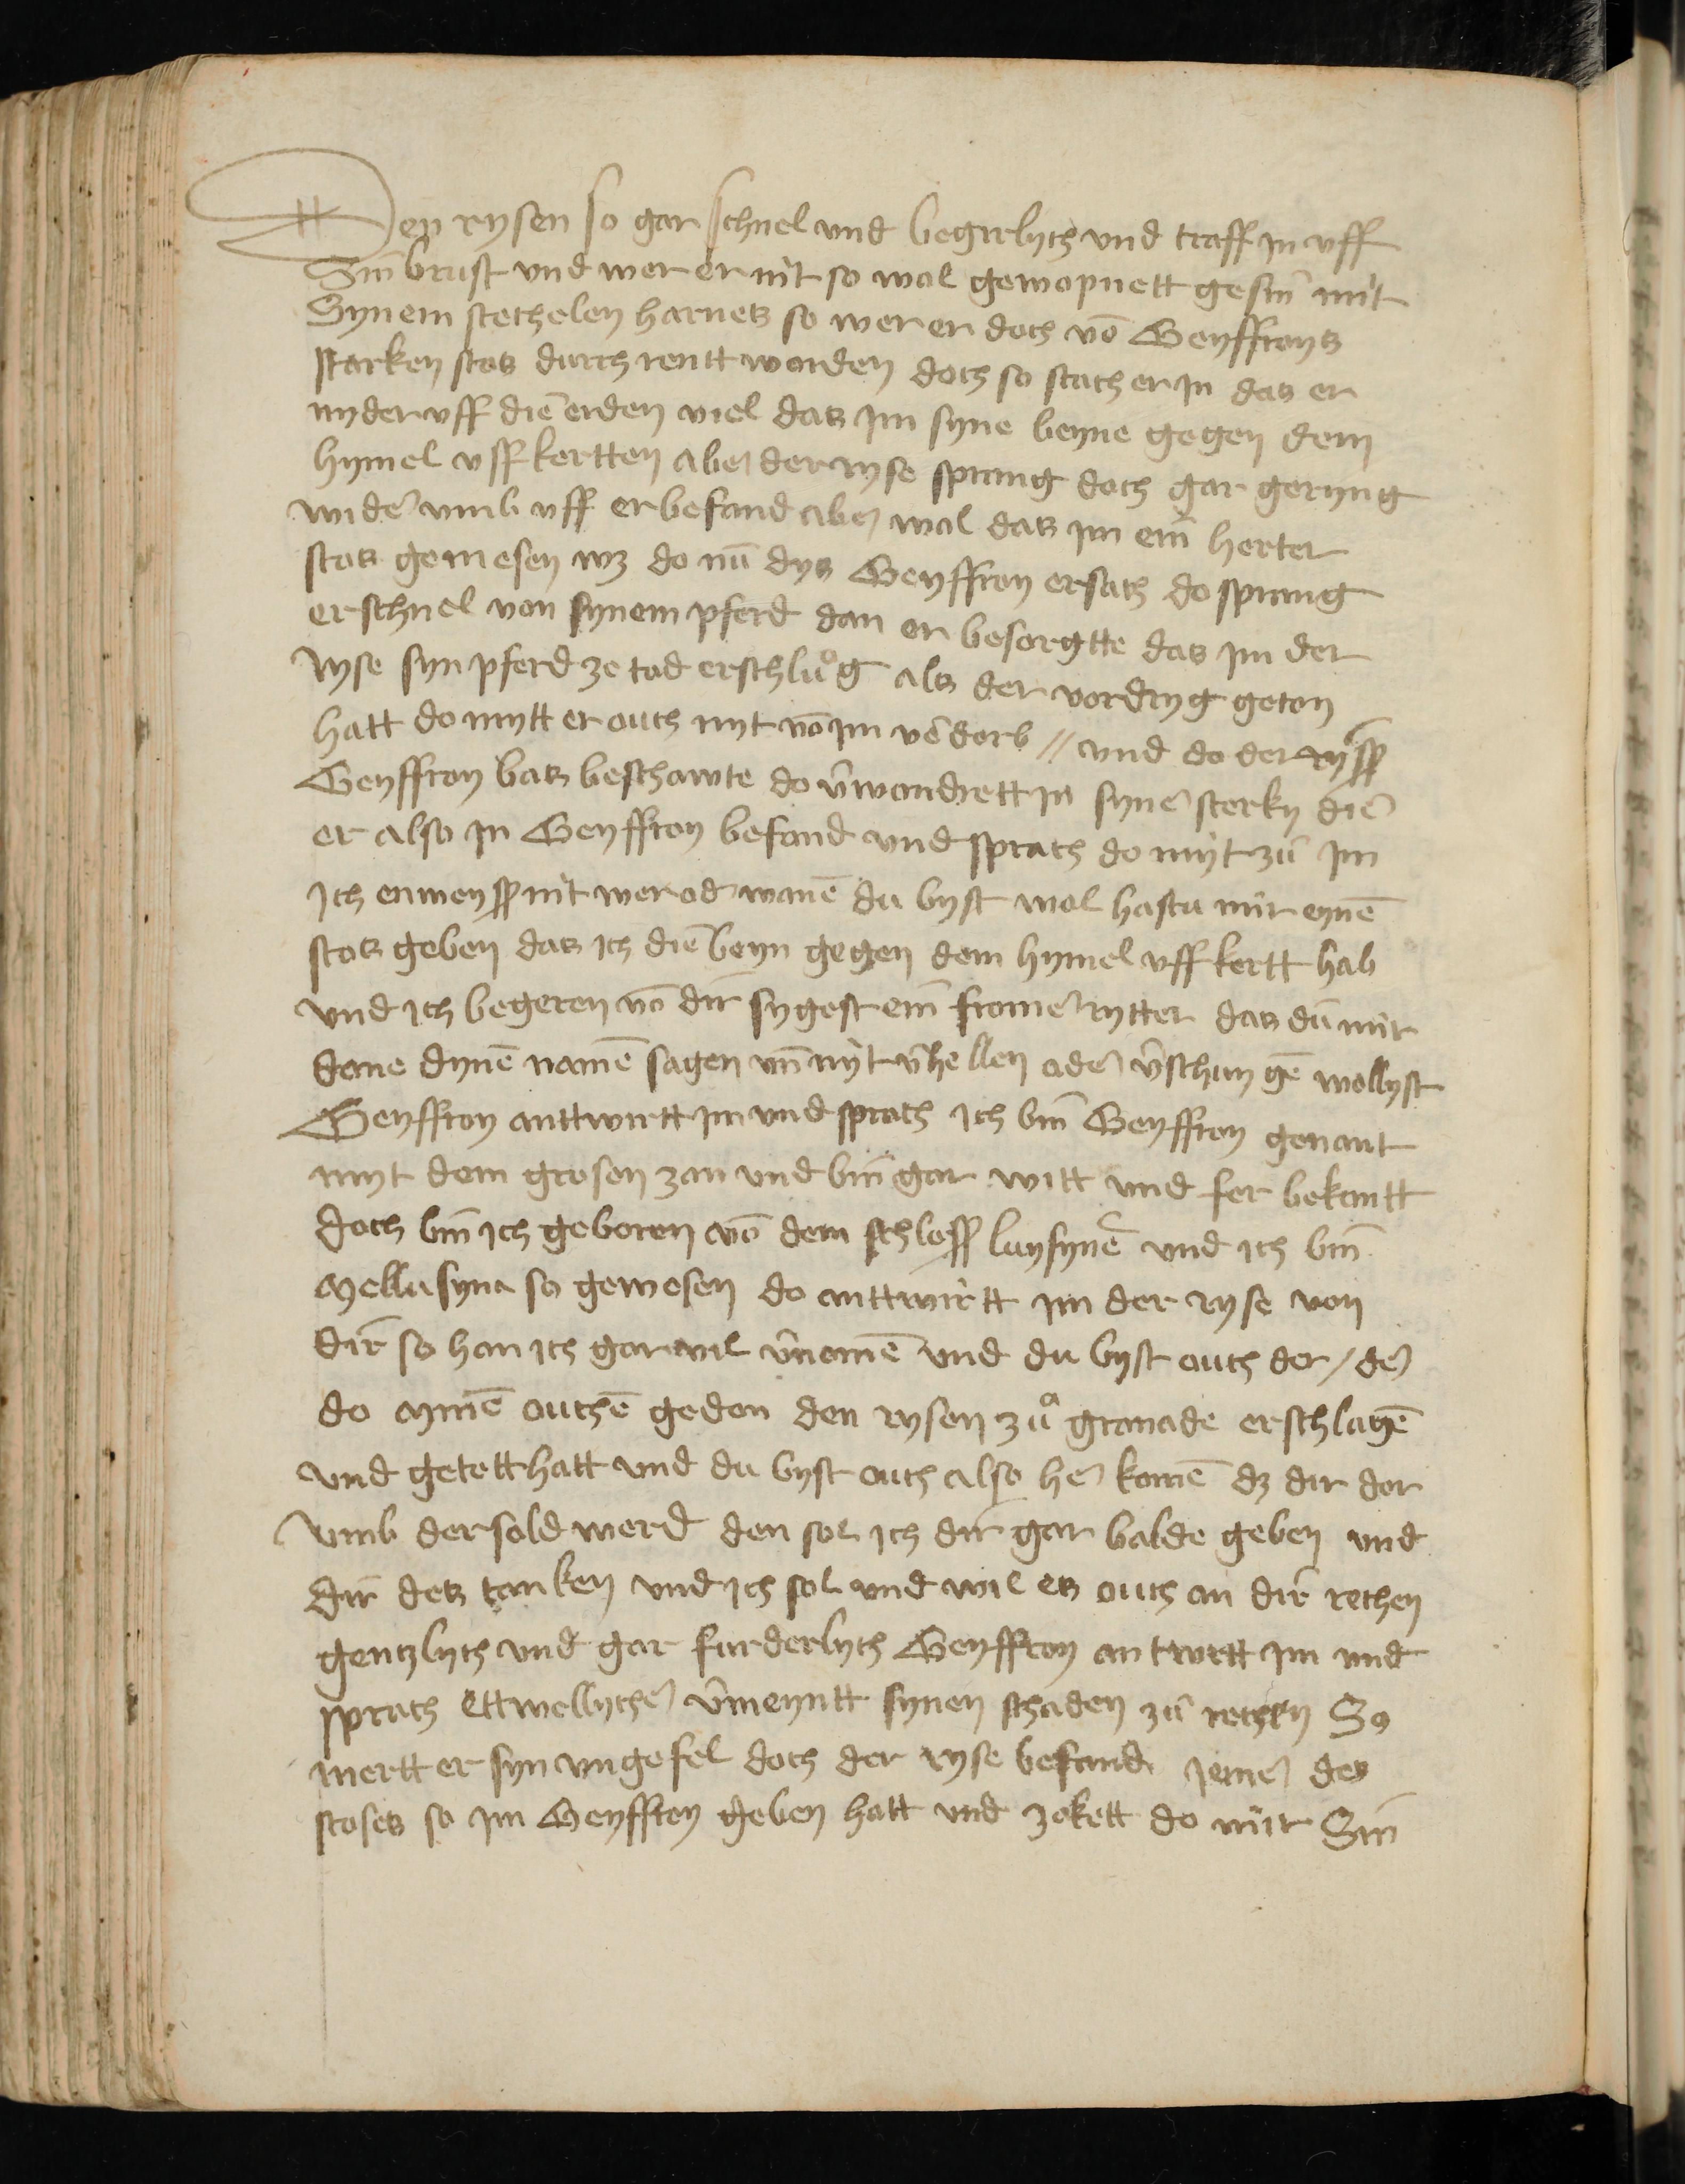 Den rysen so gar schnel vnd begirlych vnd traff in vff
Sin brust vnd wer er nit so wol gewopnett gesin mit
Synem stechelen harnes so wer er doch võ Geyffroys
starken stos durch rentt worden doch so stach er in das er
nyder vff die erden viel das im syne beyne gegen dem
hymel vff kertten aber der ryse sprang doch gar geryng
wider vmb vff er befand aber wol das im ein herter
stos gewesen wz do nũ dys Geyffroy ersach do sprang
er schnel von synem pferd dan er besorgtte das im der
Ryse syn pferd ze tod erschlůg als der vordryg geton
hatt do mytt er ouch nyt võ im v̄dorb // vnd do der ryss
Geyffroy bas beschawte do v̄wondrett in syner sterky die
er also in Geyffroy befand vnd sprach do myt zů im
Ich enweyss nit wer od wanē du byst wol hastu mir eynē
stos geben das ich die beyn gegen dem hymel vff kertt hab
vnd ich begeren võ dir sygest ein fromer rytter das dů mir
done dynē namē sagen vñ nyt v̄hellen oder v̄schwygē wollyst
Geyffroy anttwirtt im vnd sprach Ich bin Geyffroy genant
myt dem grosen zan vnd bin gar witt vnd fer bekantt
doch bin ich geboren võ dem schloss lusynē vnd ich bin
Mellusyna so gewesen do anttwirtt im der ryse von
dir so han ich gar vil v̄nomē vnd du byst ouch der / der
do mynē ouchē gedon den rysen zů granade erschlagē
vnd getett hatt vnd du byst ouch also her komē dz dir dor
vmb der sold werd den sol ich dir gar balde geben vnd
dir des tanken vnd ich sol vnd wil es ouch an dir rechen
gentzlych vnd gar furderlych Geyffroy antwrtt im vnd
sprach Ettwellycher v̄meyntt synen schaden zů rechen So
mertt er syn vngefel doch der ryse befand iemer des
stoses so im Geyffroy geben hatt vnd zokett do mit Sin